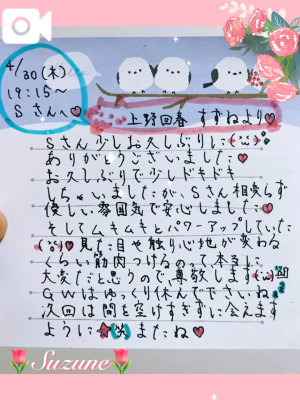 4/30(木)
19:15〜
Sさんへ
上野回春 すずねより
Sさん少しお久しぶりに
ありがとうございました
お久しぶりで少しドキドキ
しちゃいましたが、Sさん相変らず
優しい雰囲気で安心しました
そしてムキムキとパワーアップしていた
見た目や触り心地が変わる
くらい筋肉つけるのって本当に
大変だと思うので尊敬します
GWはゆっくり休んで下さいね
次回は間を空けすぎずに会えます
ように(笑)またね
Suzune